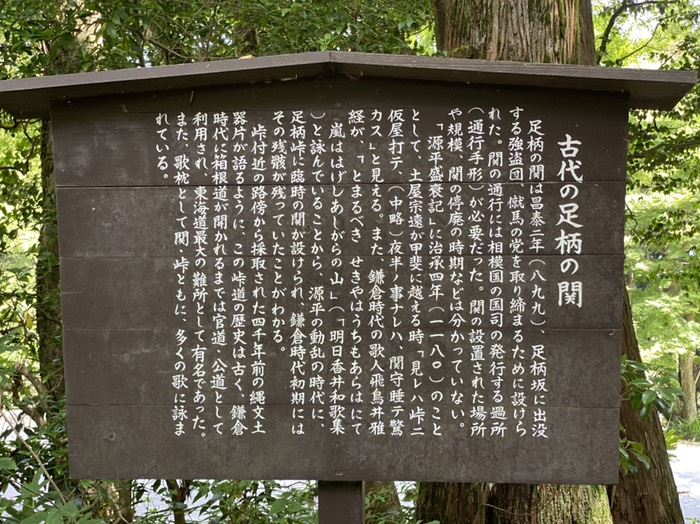 古代の足柄の関
足柄の関は昌泰二年(八九九)、足柄坂に出没
する強盗団、僦馬の党を取り締まるために設けら
れた。関の通行には相模国の国司の発行する過所
(通行手形)が必要だった。関の設置された場所
や規模、関の停廃の時期などは分かっていない。
「源平盛衰記」に治承四年(一一八〇)のこと
として、土屋宗遠が甲斐に越える時「見レハ峠ニ
仮屋打テ、(中略)夜半ノ事ナレハ、関守睡テ驚
カス」と見える。また、鎌倉時代の歌人飛鳥井雅
経が、「とまるべき せきやはうちもあらはにて
嵐ははげしあしがらの山」(「明日香井和歌集
」)と詠んでいることから、源平の動乱の時代に、
足柄峠に臨時の関が設けられ、鎌倉時代初期には
その残骸が残っていたことがわかる。
峠付近の路傍から採取された四千年前の縄文土
器片が語るように、この峠道の歴史は古く、鎌倉
時代に箱根道が開かれるまでは官道、公道として
利用され、東海道最大の難所として有名であった。
また、歌枕として関 峠ともに、多くの歌に詠ま
れている。